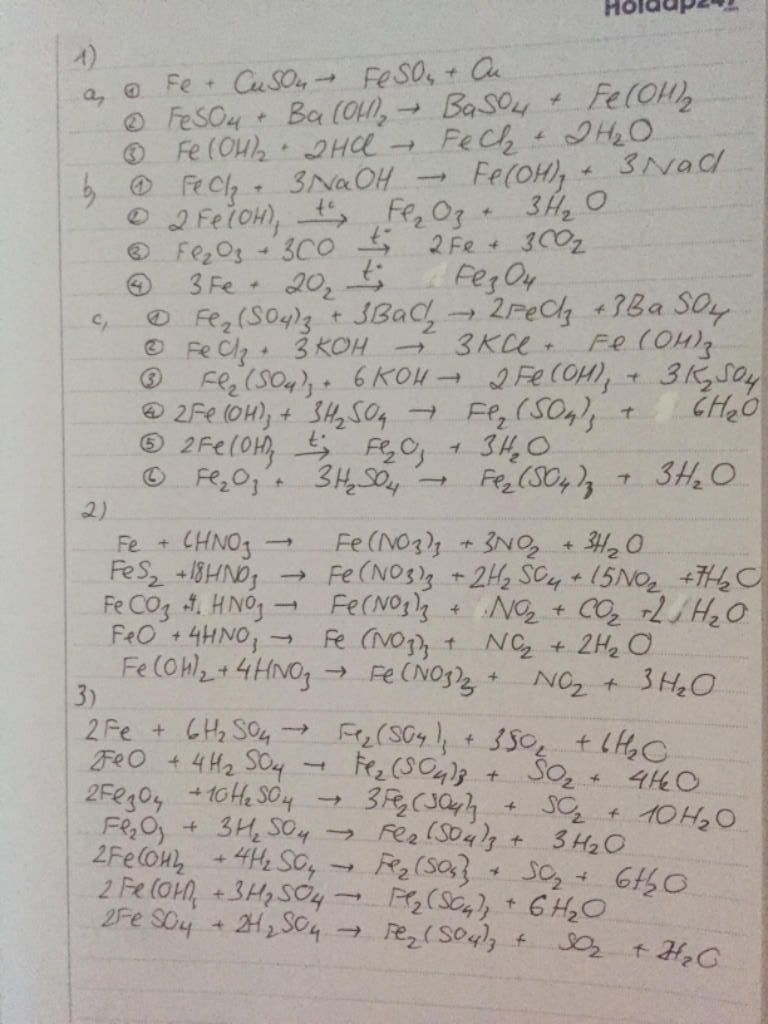 Hoidap247
1)
a, ① Fe + CuSO4 → FeSO4 + Cu
② FeSO4 + Ba(OH)2 → BaSO4 + Fe(OH)2
③ Fe(OH)2 + 2HCl → FeCl2 + 2H2O
b, ① FeCl3 + 3NaOH → Fe(OH)3 + 3NaCl
② 2Fe(OH)3 t° → Fe2O3 + 3H2O
③ Fe2O3 + 3CO t° → 2Fe + 3CO2
④ 3Fe + 2O2 t° → Fe3O4
c, ① Fe2(SO4)3 + 3BaCl2 → 2FeCl3 + 3BaSO4
② FeCl3 + 3KOH → 3KCl + Fe(OH)3
③ Fe2(SO4)3 + 6KOH → 2Fe(OH)3 + 3K2SO4
④ 2Fe(OH)3 + 3H2SO4 → Fe2(SO4)3 + 6H2O
⑤ 2Fe(OH)3 t° → Fe2O3 + 3H2O
⑥ Fe2O3 + 3H2SO4 → Fe2(SO4)3 + 3H2O
2)
Fe + 6HNO3 → Fe(NO3)3 + 3NO2 + 3H2O
FeS2 + 18HNO3 → Fe(NO3)3 + 2H2SO4 + 15NO2 + 7H2O
FeCO3 + 4 HNO3 → Fe(NO3)3 + NO2 + CO2 + 2 H2O
FeO + 4HNO3 → Fe(NO3)3 + NO2 + 2H2O
Fe(OH)2 + 4HNO3 → Fe(NO3)3 + NO2 + 3H2O
3)
2Fe + 6H2SO4 → Fe2(SO4)3 + 3SO2 + 6H2O
2FeO + 4H2SO4 → Fe2(SO4)3 + SO2 + 4H2O
2Fe3O4 + 10H2SO4 → 3Fe2(SO4)3 + SO2 + 10H2O
Fe2O3 + 3H2SO4 → Fe2(SO4)3 + 3H2O
2Fe(OH)2 + 4H2SO4 → Fe2(SO4)3 + SO2 + 6H2O
2Fe(OH)3 + 3H2SO4 → Fe2(SO4)3 + 6H2O
2FeSO4 + 2H2SO4 → Fe2(SO4)3 + SO2 + 2H2O